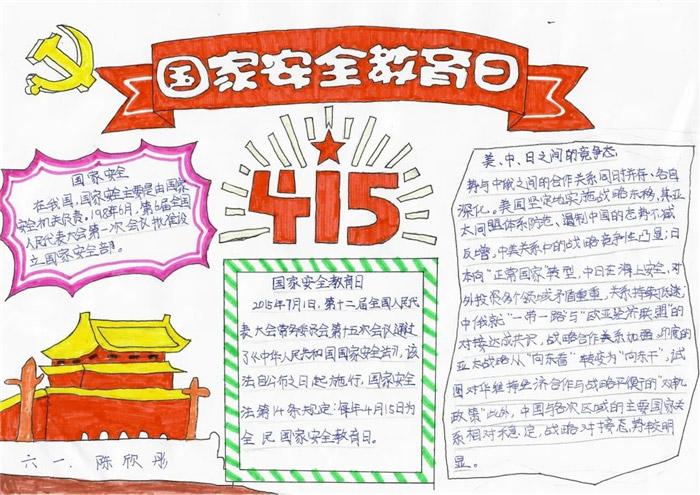 国家安全教育日
415
国家安全
在我国,国家安全主要是由国家
安全机关负责,1984年6月,第6届全国
人民代表大会第一次会议批准设
立国家安全部。
国家安全教育日
2015年7月1日,第十二届全国人民代
表大会常务委员会第十五次会议通过
了《中华人民共和国国家安全法》,该
法自公布之日起施行,国家安全
法第14条规定:每年4月15日为
全民国家安全教育日。
美、中、日之间的竞争态
势与中俄之间的合作关系同时并存、各自
深化。美国坚定地实施战略东移,其亚
太同盟体系防范、遏制中国的态势不减
反增,中美关系中的战略竞争性凸显;日
本向“正常国家”转型,中日在海上安全、对
外投资各个领域矛盾重重,关系持续低迷
中俄就“一带一路”与“欧亚经济联盟”的
对接达成共识,战略合作关系加强;印度的
亚太战略从“向东看”转变为“向东干”,试
图对华维持经济合作与战略平衡的“对轨
政策”此外,中国与各次区域的主要国家关
系相对稳定,战略对接态势较明
显。
六一、陈欣彤